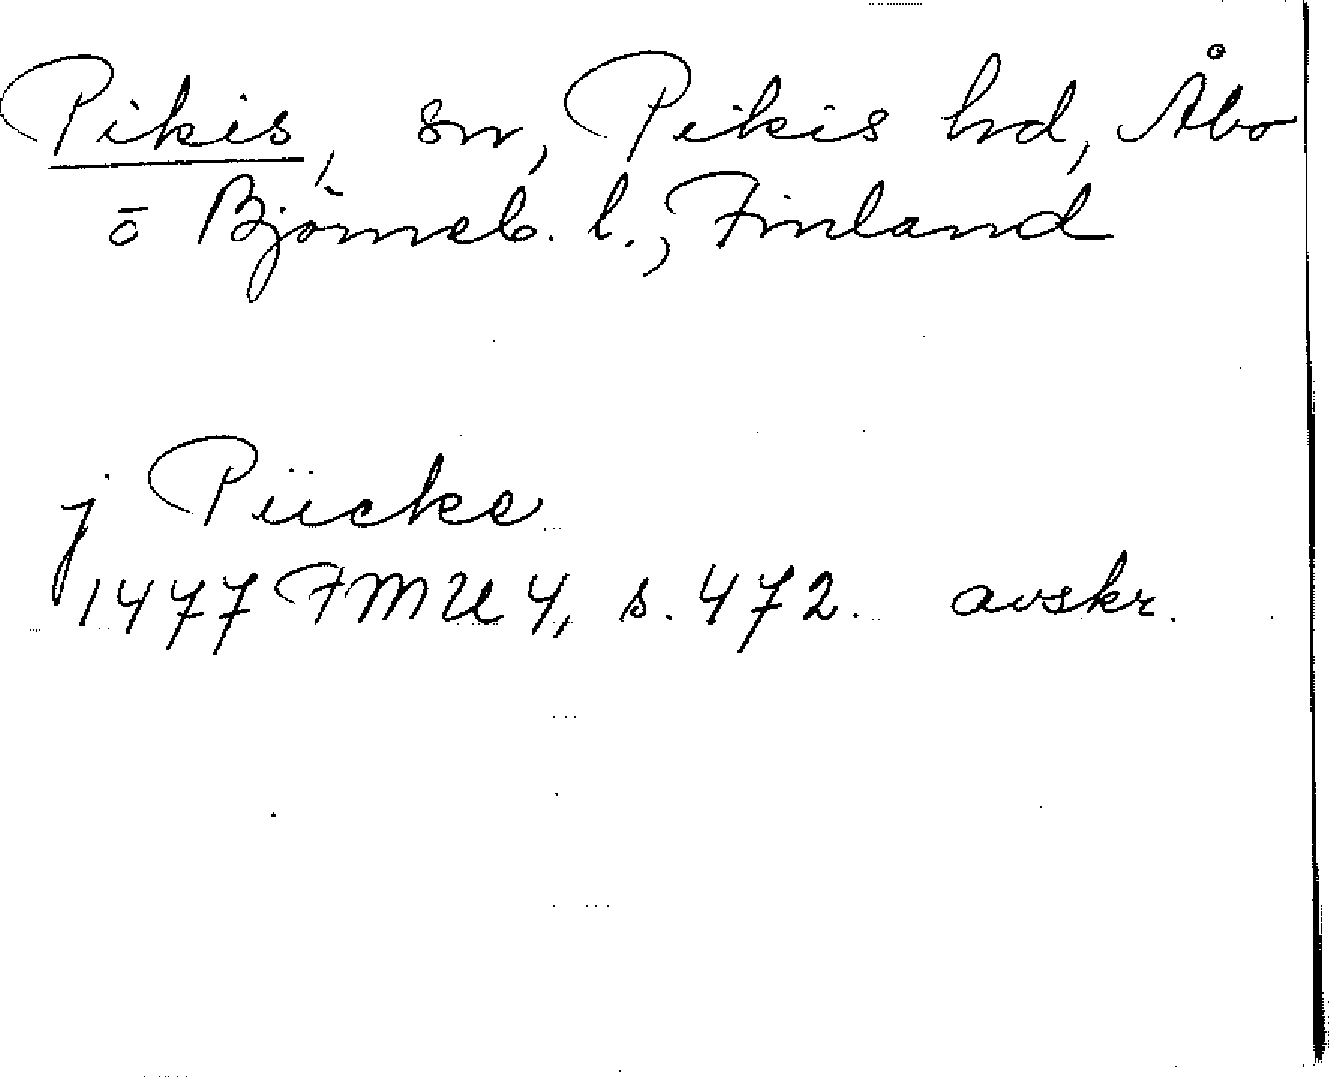 Pikis, sn, Pikis hd, Åbo
o Björneb. l., Finland
j Piicke
1477 FMU 4, s. 472. avskr.